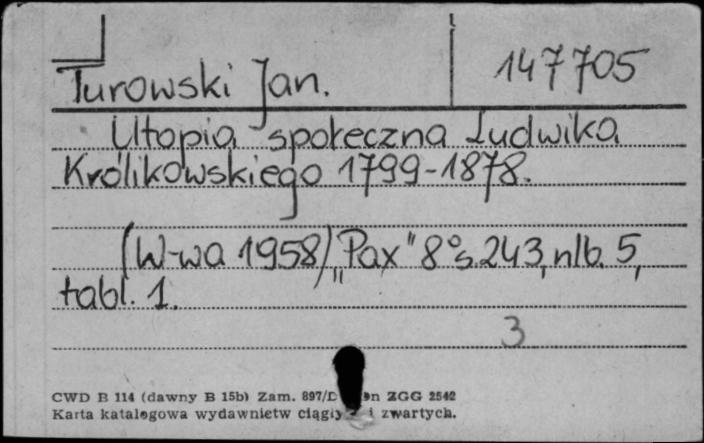 Turowski Jan. 147705
Utopia społeczna Ludwika
Królikowskiego 1799-1878.
(W-wa 1958) „Pax" 8° s. 243, nlb. 5,
tabl. 1.
3
CWD B 114 (dawny B 15b) Zam. 897/D ZGG 2542
Karta katalogowa wydawnictw ciągłych i zwartych.